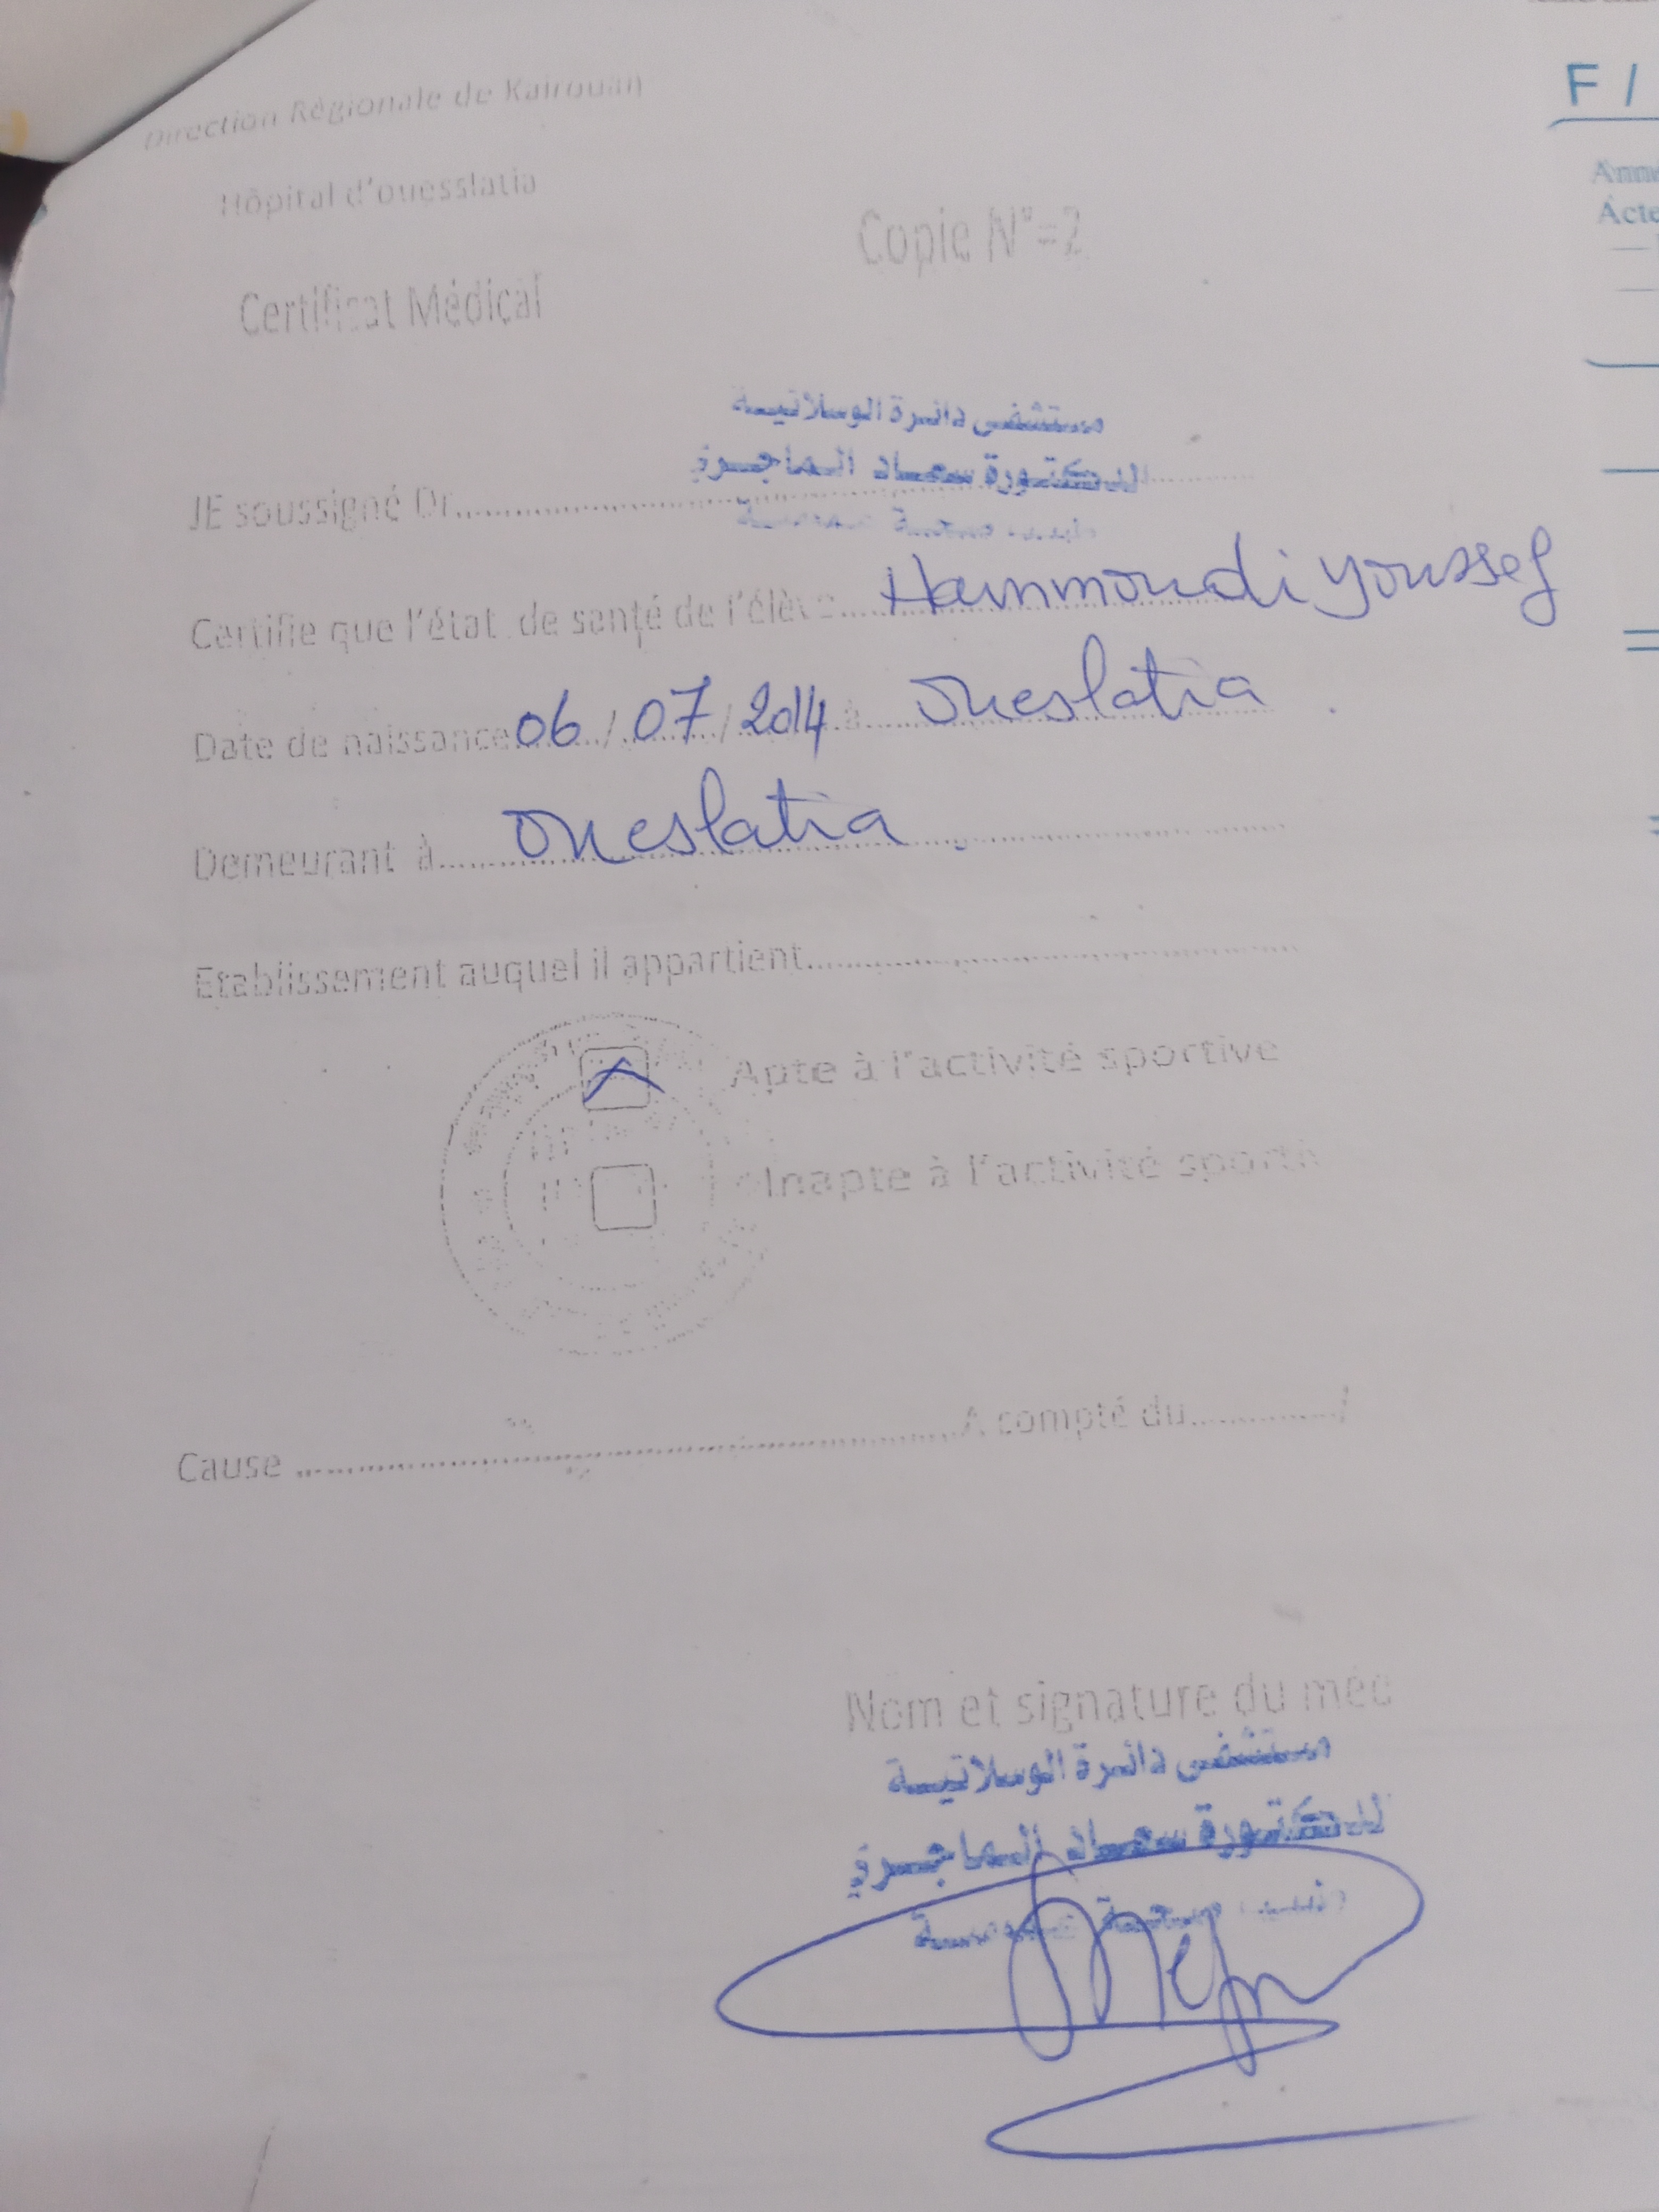 Direction Régionale de Kairouan
Hôpital d'ouesslatia
Copie N°=2
Certificat Médical
مستشفى دائرة الوسلاتية
الدكتورة سعاد الماجري
JE soussigné Dr
Certifie que l'état de santé de l'élève Hammoudi youssef
Date de naissance 06/07/2014 à oueslatia
Demeurant à oueslatia
Etablissement auquel il appartient
Apte à l'activité sportive
Inapte à l'activité sporti
Cause A compté du /
Nom et signature du méd
مستشفى دائرة الوسلاتية
الدكتورة سعاد الماجري
F/
Acte